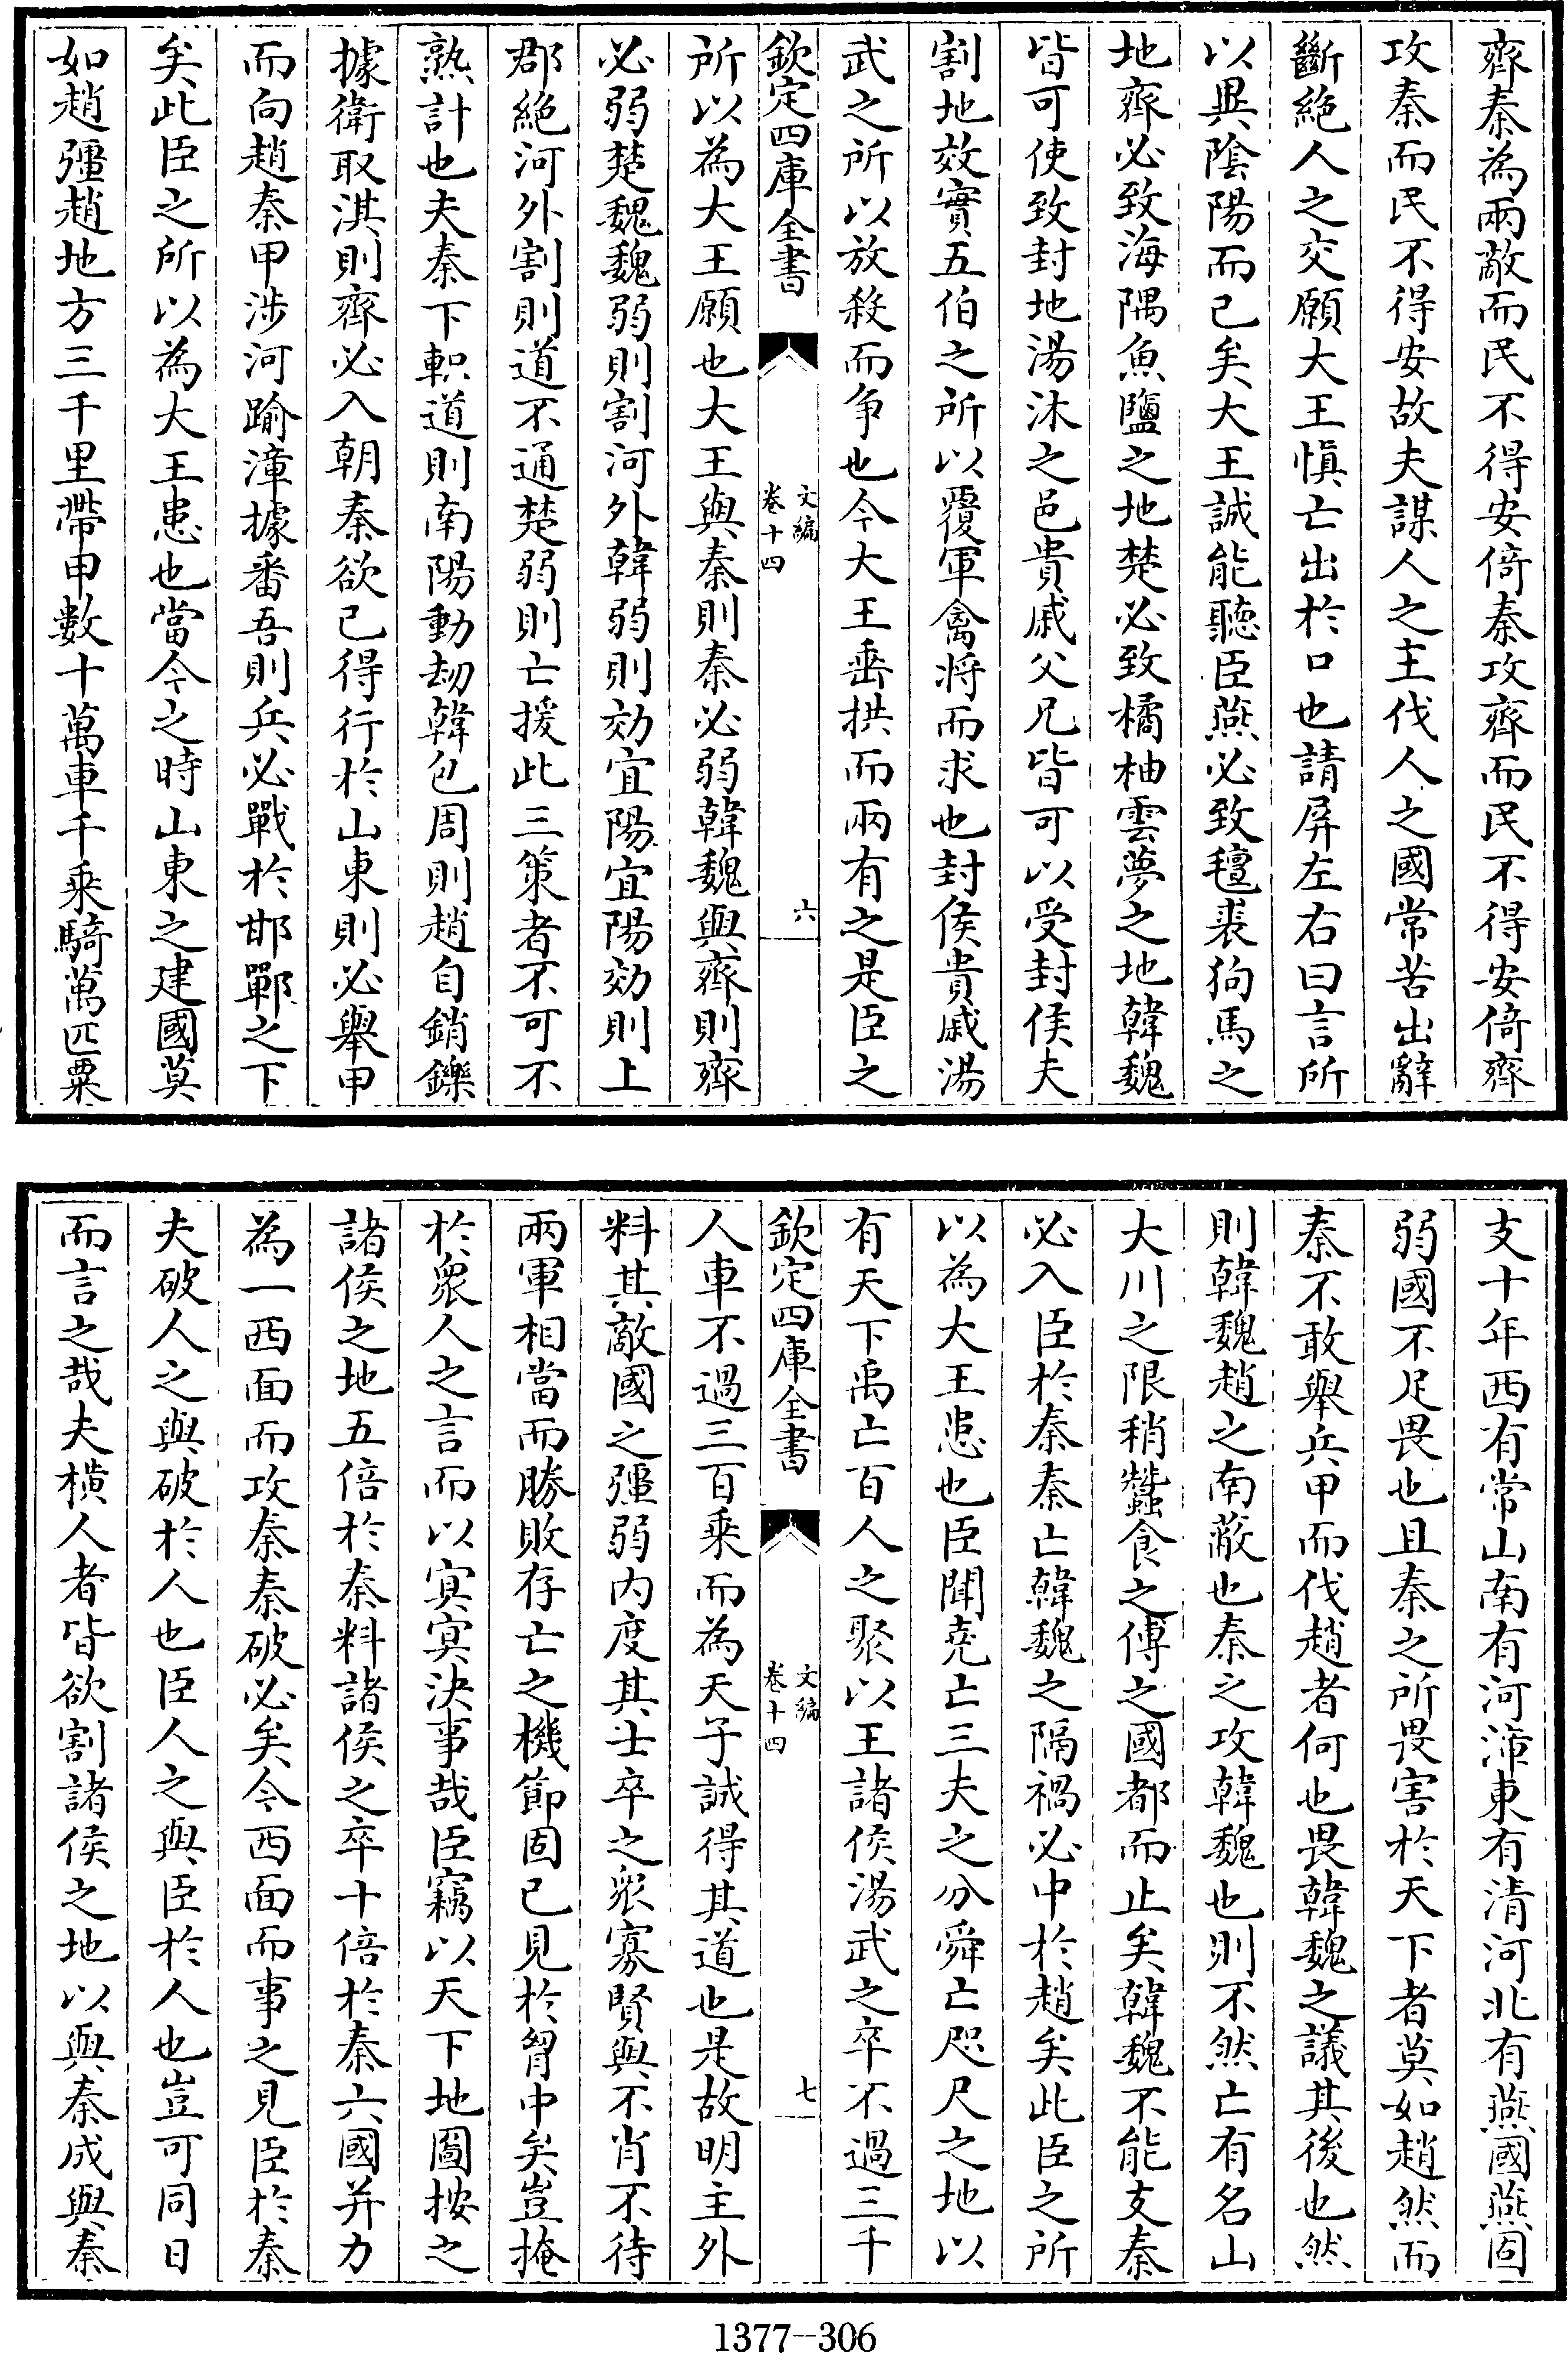 齊秦為兩敵而民不得安倚秦攻齊而民不得安倚齊
攻秦而民不得安故夫謀人之主伐人之國常苦出辭
斷絕人之交願大王慎亡出於口也請屏左右曰言所
以異陰陽而已矣大王誠能聽臣燕必致氊裘狗馬之
地齊必致海隅魚鹽之地楚必致橘柚雲夢之地韓魏
皆可使致封地湯沐之邑貴戚父兄皆可以受封侯夫
割地效實五伯之所以覆軍禽將而求也封侯貴戚湯
武之所以放殺而争也今大王垂拱而兩有之是臣之
欽定四庫全書
文編
卷十四
六
所以為大王願也大王與秦則秦必弱韓魏與齊則齊
必弱楚魏魏弱則割河外韓弱則効宜陽宜陽効則上
郡絕河外割則道不通楚弱則亡援此三策者不可不
熟計也夫秦下軹道則南陽動劫韓包周則趙自銷鑠
據衛取淇則齊必入朝秦欲已得行於山東則必舉甲
而向趙秦甲涉河踰漳據番吾則兵必戰於邯鄲之下
矣此臣之所以為大王患也當今之時山東之建國莫
如趙彊趙地方三千里帶甲數十萬車千乘騎萬匹粟
支十年西有常山南有河漳東有清河北有燕國燕固
弱國不足畏也且秦之所畏害於天下者莫如趙然而
秦不敢舉兵甲而伐趙者何也畏韓魏之議其後也然
則韓魏趙之南蔽也秦之攻韓魏也則不然亡有名山
大川之限稍蠶食之傅之國都而止矣韓魏不能支秦
必入臣於秦秦亡韓魏之隔禍必中於趙矣此臣之所
以為大王患也臣聞堯亡三夫之分舜亡咫尺之地以
有天下禹亡百人之聚以王諸侯湯武之卒不過三千
欽定四庫全書
文編
卷十四
七
人車不過三百乘而為天子誠得其道也是故明主外
料其敵國之彊弱内度其士卒之衆寡賢與不肖不待
兩軍相當而勝敗存亡之機節固已見於胷中矣豈掩
於衆人之言而以冥冥決事哉臣竊以天下地圖按之
諸侯之地五倍於秦料諸侯之卒十倍於秦六國并力
為一西面而攻秦秦破必矣今西面而事之見臣於秦
夫破人之與破於人也臣人之與臣於人也豈可同日
而言之哉夫橫人者皆欲割諸侯之地以與秦成與秦
1377--306